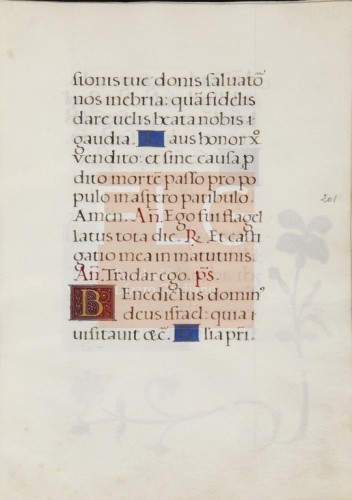 sionis tue donis saluatõ
nos inebria: quã fidelis
dare uelis beata nobis
gaudia. aus honor
vendito: et sine causa, p
dito mortẽ passo pro po
pulo in aspero patibulo.
Amen. Añ. Ego fui flagel
latus tota die. R. Et casti
gatio mea in matutinis.
Añ. Tradar ego. ps.
Benedictus domin
deus israel: quia
uisitauit
201